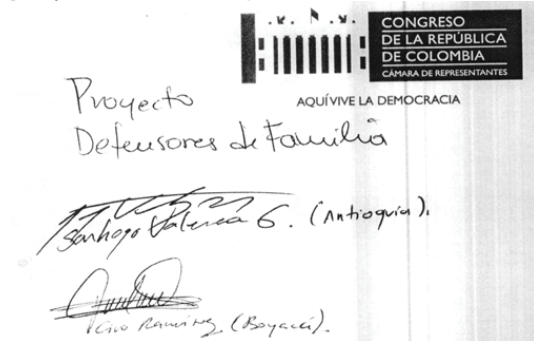 CONGRESO
DE LA REPÚBLICA
DE COLOMBIA
CÁMARA DE REPRESENTANTES
AQUÍVIVE LA DEMOCRACIA
Proyecto
Defensores de Familia
Santiago Valencia G. (Antioquia).
Ciro Ramírez (Boyacá).